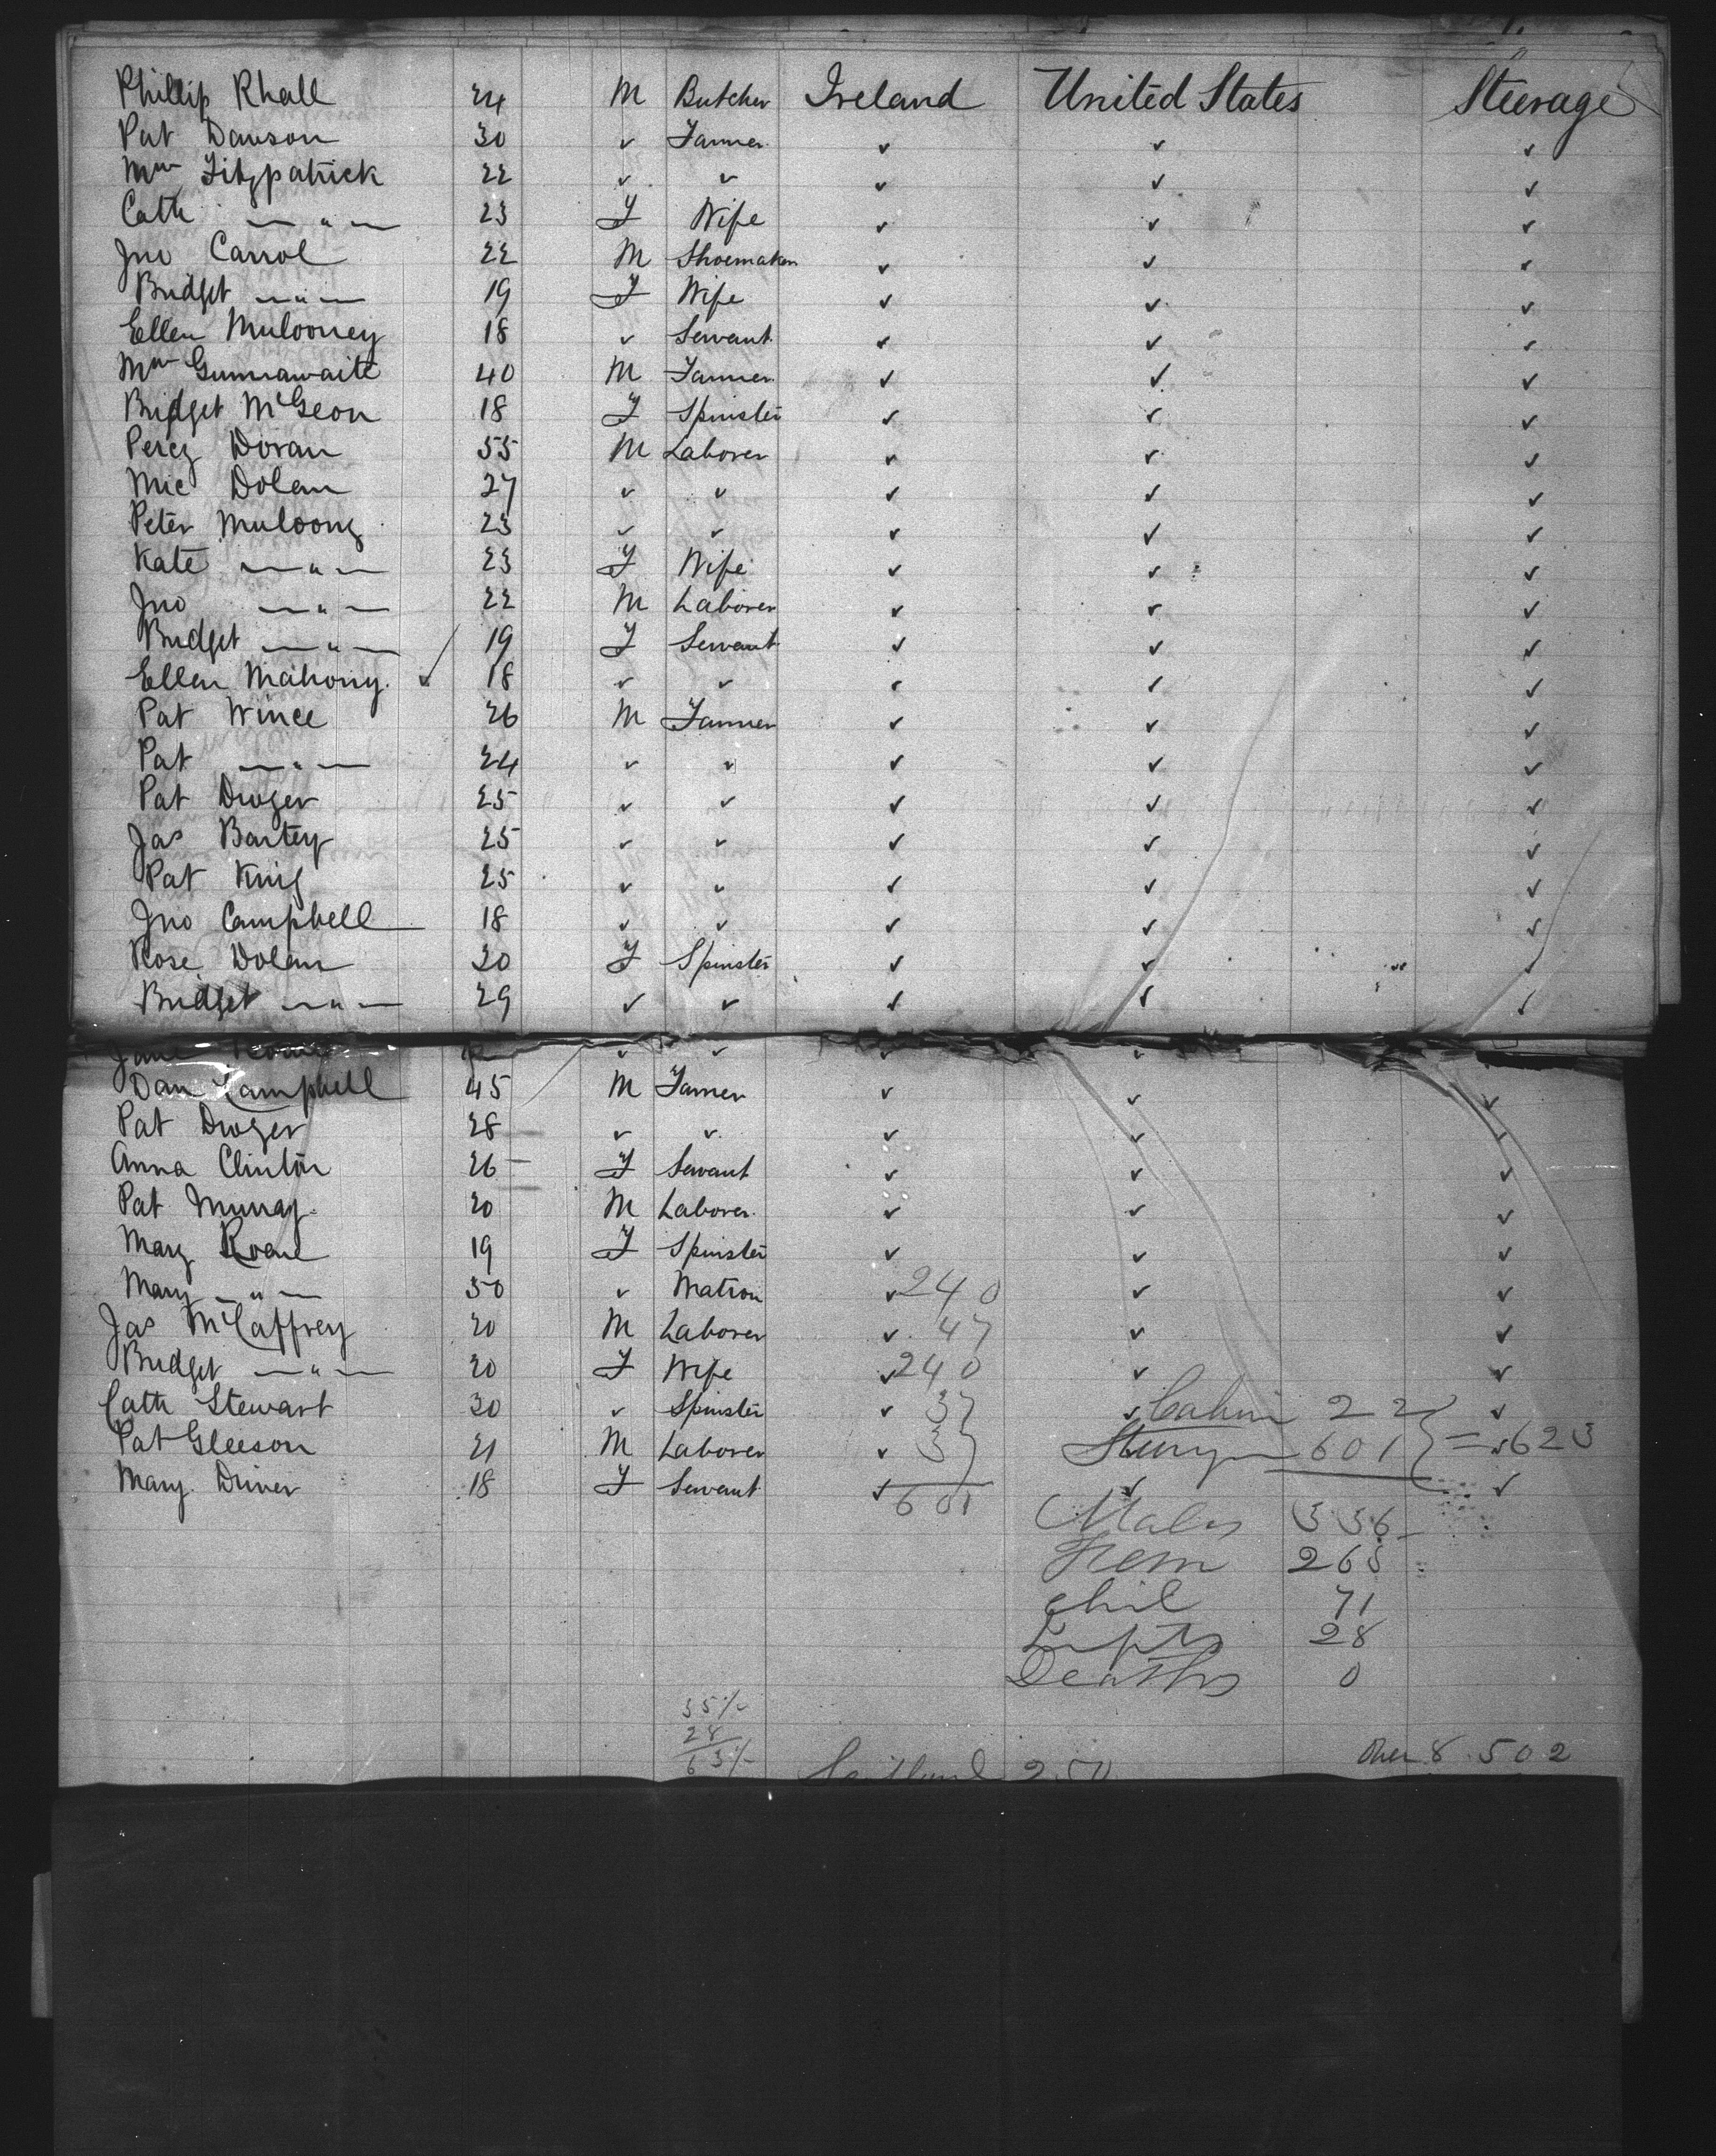 Phillip Rhall 24 M Butcher Ireland United States Steerage
Pat Dawson 30 " Farmer " " "
Wm Fitzpatrick 22 " " " " "
Cath — " — 23 F Wife " " "
Jno Carrol 22 M Shoemaker " " "
Bridget — " — 19 F Wife " " "
Ellen Mulooney 18 " Servant " " "
Wm Gunnawaite 40 M Farmer " " "
Bridget McGeon 18 F Spinster " " "
Percy Doran 55 M Laborer " " "
Mic Dolan 27 " " " " "
Peter Muloony 23 " " " " "
Kate — " — 23 F Wife " " "
Jno — " — 22 M Laborer " " "
Bridget — " — 19 F Servant " " "
Ellen Mahony 18 " " " " "
Pat Wince 26 M Farmer " " "
Pat — " — 24 " " " " "
Pat Dwyer 25 " " " " "
Jas Bartey 25 " " " " "
Pat King 25 " " " " "
Jno Campbell 18 " " " " "
Rose Dolan 20 F Spinster " " "
Bridget — " — 29 " " " " "
Jane " " " "
Dan Campbell 45 M Farmer " " "
Pat Dwyer 28 " " " " "
Anna Clinton 26 F Servant " " "
Pat Murray 20 M Laborer " " "
Mary Roane 19 F Spinster " " "
Mary — " — 50 " Matron " 240 " "
Jas McCaffrey 20 M Laborer " 47 " "
Bridget — " — 20 F Wife " 240 " "
Cath Stewart 30 " Spinster " 37 " Cabin 22 "
Pat Gleeson 21 M Laborer " 37 Steerage 601 = 623
Mary Driver 18 F Servant " 601 " "
Males 336
Fem 265
Chil 71
Infts 28
Deaths 0
35/-
28
63/-
Scotland 250
Over 8 502